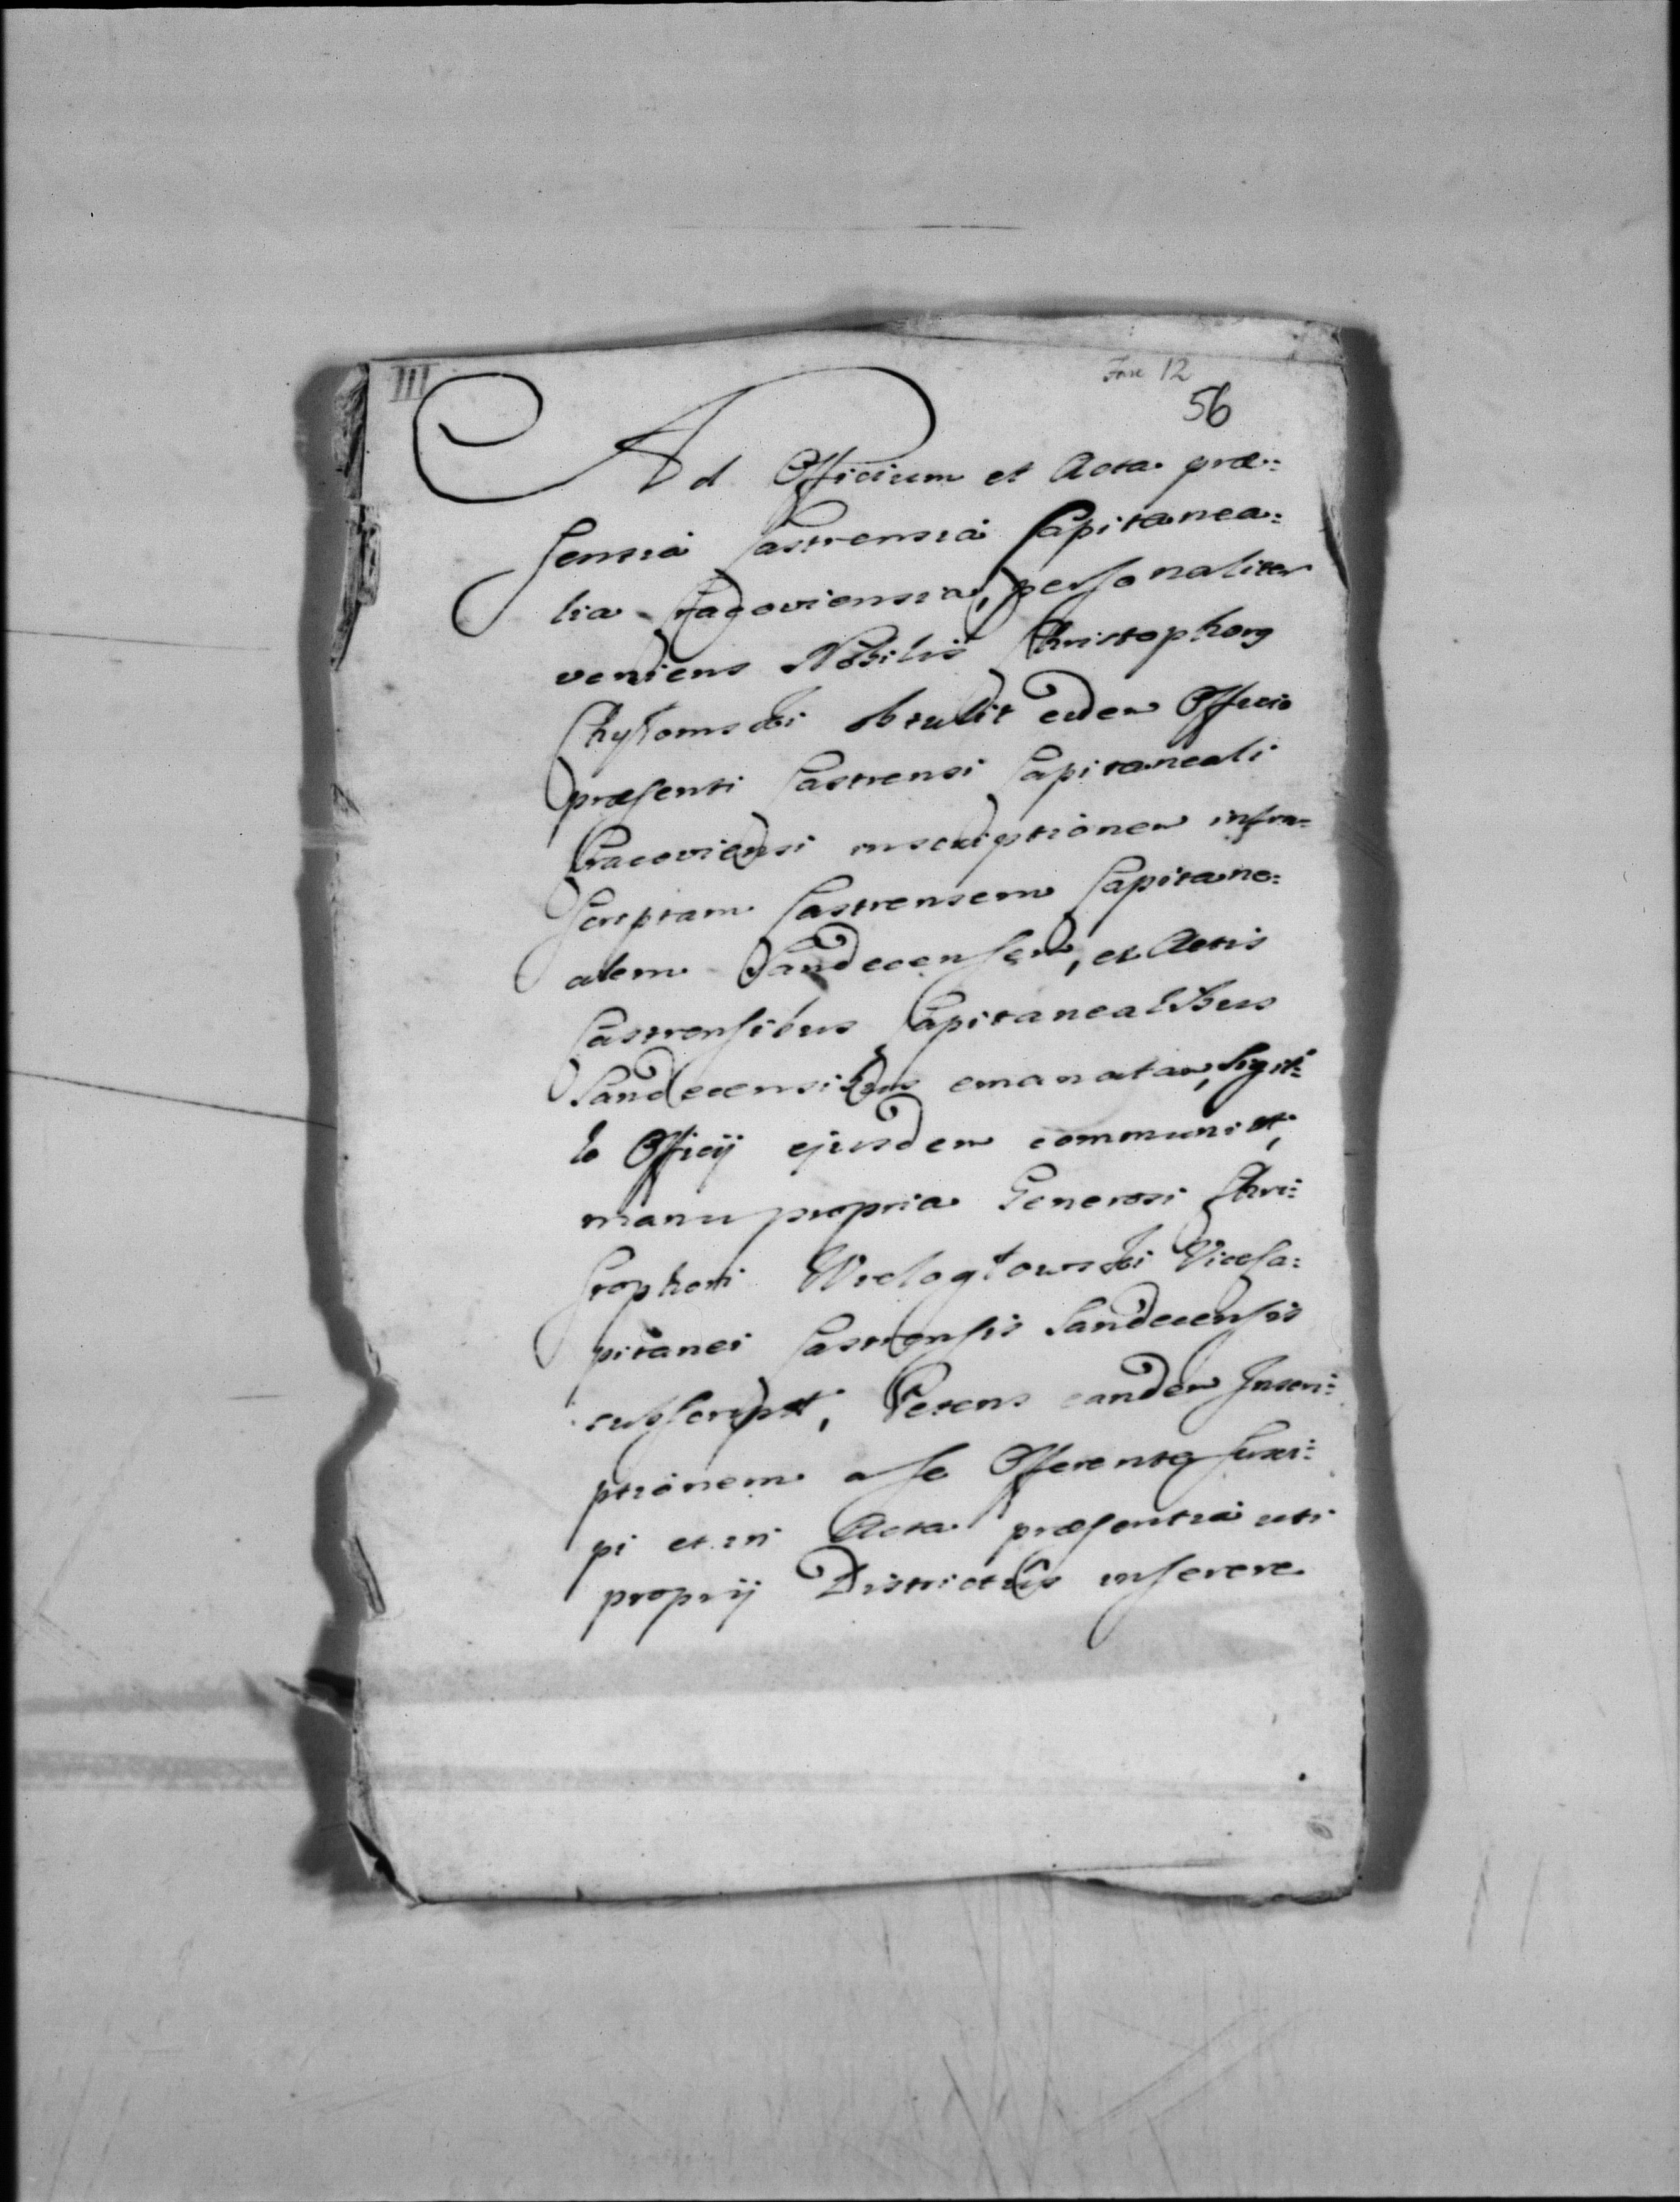 III
Fasc 12
56
Ad Officium et Acta præ:
sentia Castrensia Capitanea:
lia Cracoviensia, personaliter
veniens Nobilis Christophorg
Chyłomski obtulit eidem Officio
præsenti Castrensi Capitaneali
Cracoviensi inscriptionem infra=
scriptam Castrensem Capitane:
alem Sandecensem, ex Actis
Castrensibus Capitanealibus
Sandecensibus emanatam, Sigil:
lo Officij ejusdem communit,
manu propria Generosi Chri:
stophori Wielogłowski Viceca:
pitanei Castrensis Sandecensis
subscript, Petens eandem Inscri:
ptionem a se Offerente susci:
pi et in Acta præsentia uti
proprij Districtus inserere